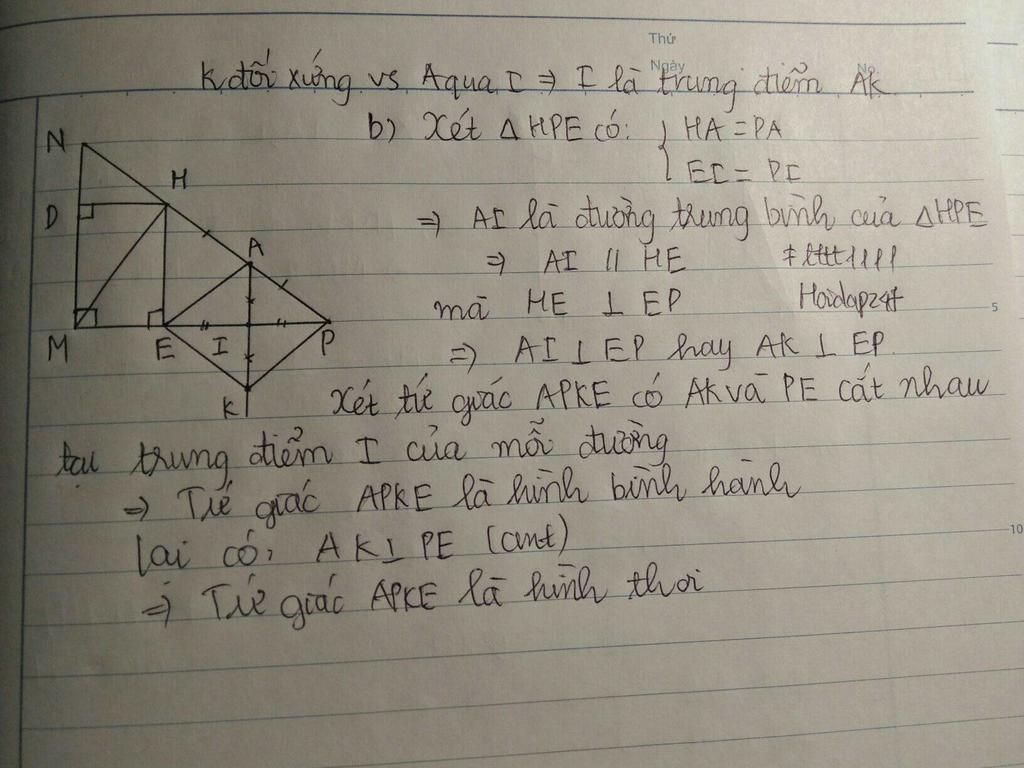 Thứ
Ngày No.
K đối xứng vs A qua I => I là trung điểm AK
b) Xét Δ HPE có: { HA = PA
EI = PI
N
H
D
=> AI là đường trung bình của ΔHPE
A
=> AI // HE
mà HE ⊥ EP Hoidap247
5
M E I P
=> AI ⊥ EP hay AK ⊥ EP
K
Xét tứ giác APKE có AK và PE cắt nhau
tại trung điểm I của mỗi đường
=> Tứ giác APKE là hình bình hành
lại có, AK ⊥ PE (cmt)
10
=> Tứ giác APKE là hình thoi